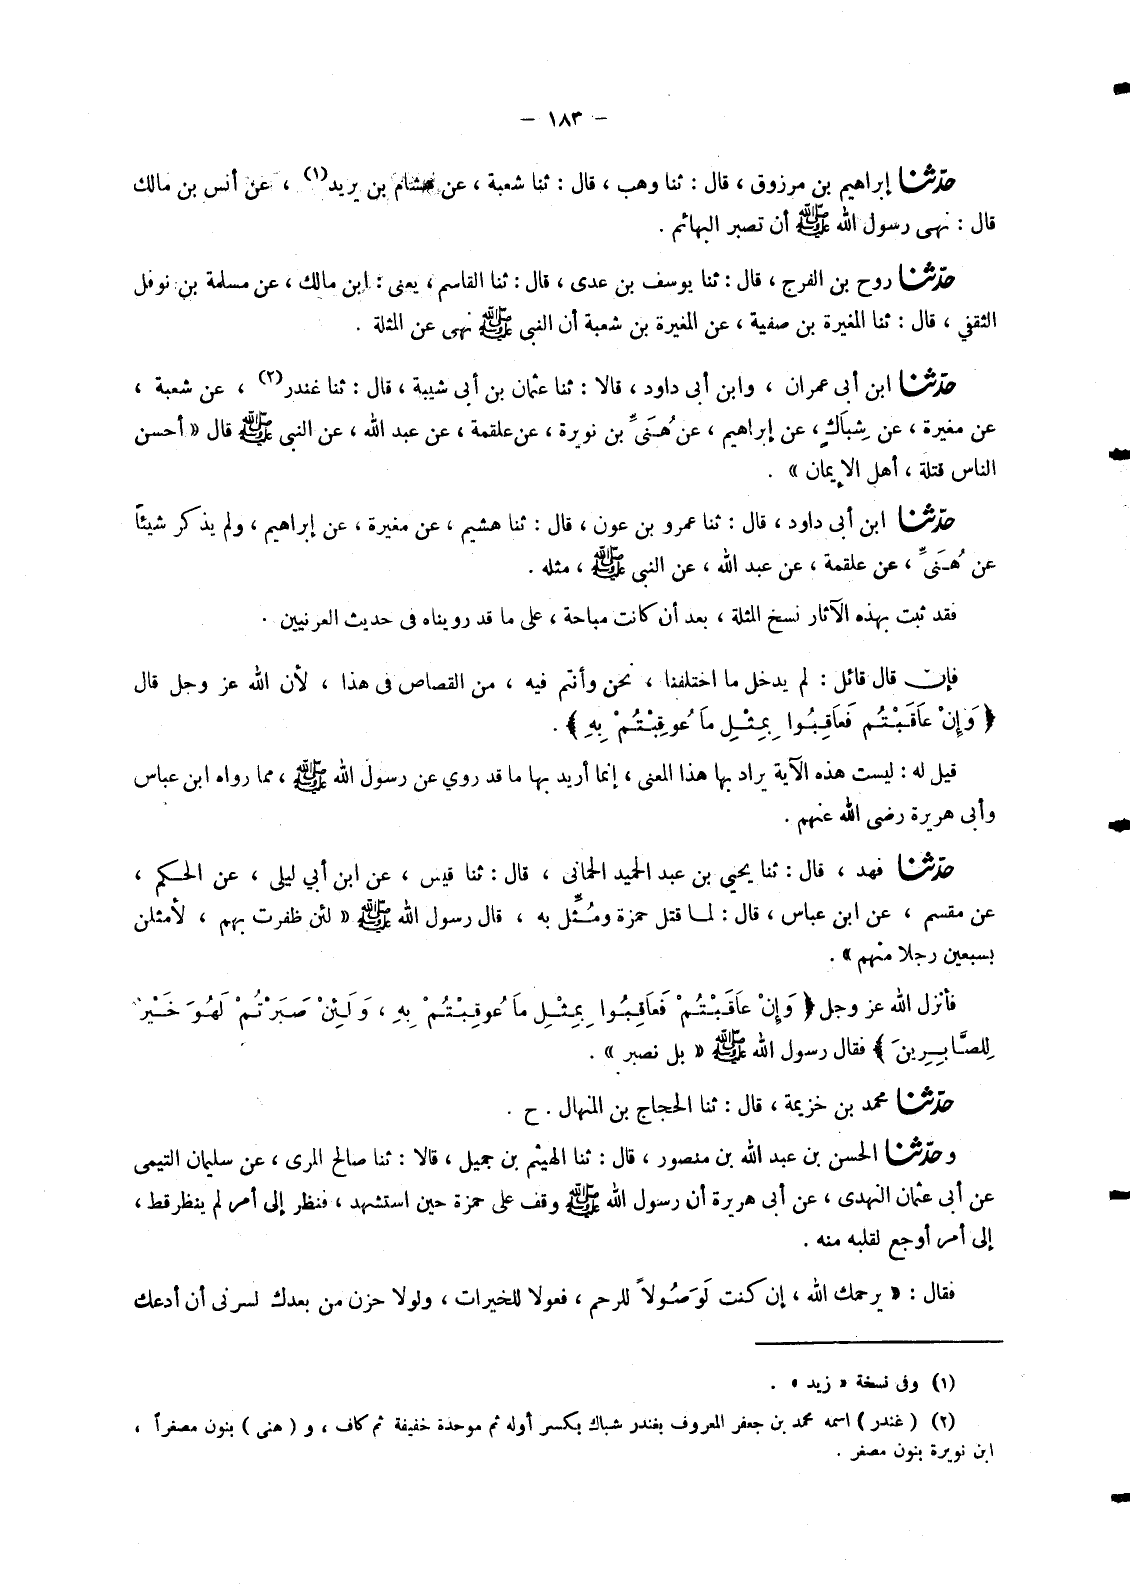 – ١٨٣ –
حدّثنا إبراهيم بن مرزوق ، قال : ثنا وهب ، قال : ثنا شعبة ، عن هشام بن يزيد(١) ، عن أنس بن مالك
قال : نهى رسول الله ﷺ أن تصبر البهائم .
حدّثنا روح بن الفرج ، قال : ثنا يوسف بن عدى ، قال : ثنا القاسم ، يعنى : ابن مالك ، عن مسلمة بن نوفل
الثقفي ، قال : ثنا المغيرة بن صفية ، عن المغيرة بن شعبة أن النبى ﷺ نهى عن المثلة .
حدّثنا ابن أبى عمران ، وابن أبى داود ، قالا : ثنا عثمان بن أبى شيبة ، قال : ثنا غندر(٢) ، عن شعبة ،
عن مغيرة ، عن شِبَاكٍ ، عن إبراهيم ، عن هُنَىِّ بن نويرة ، عن علقمة ، عن عبد الله ، عن النبى ﷺ قال « أحسن
الناس قتلة ، أهل الإيمان » .
حدّثنا ابن أبى داود ، قال : ثنا عمرو بن عون ، قال : ثنا هشيم ، عن مغيرة ، عن إبراهيم ، ولم يذكر شيئاً
عن هُنَىٍّ ، عن علقمة ، عن عبد الله ، عن النبى ﷺ ، مثله .
فقد ثبت بهذه الآثار نسخ المثلة ، بعد أن كانت مباحة ، على ما قد رويناه فى حديث العرنيين .
فإن قال قائل : لم يدخل ما اختلفنا ، نحن وأنتم فيه ، من القصاص فى هذا ، لأن الله عز وجل قال
﴿ وَإِنْ عَاقَبْتُم فَعَاقِبُوا بِمِثْلِ مَا عُوقِبْتُمْ بِهِ ﴾ .
قيل له : ليست هذه الآية يراد بها هذا المعنى ، إنما أريد بها ما قد روي عن رسول الله ﷺ ، مما رواه ابن عباس
وأبى هريرة رضى الله عنهم .
حدّثنا فهد ، قال : ثنا يحيى بن عبد الحميد الحمانى ، قال : ثنا قيس ، عن ابن أبي ليلى ، عن الحكم ،
عن مقسم ، عن ابن عباس ، قال : لما قتل حمزة ومُثِّل به ، قال رسول الله ﷺ « لئن ظفرت بهم ، لأمثلن
بسبعين رجلا منهم » .
فأنزل الله عز وجل ﴿ وَإِنْ عَاقَبْتُمْ فَعَاقِبُوا بِمِثْلِ مَا عُوقِبْتُمْ بِهِ ، وَلَئِنْ صَبَرْتُمْ لَهُوَ خَيْرٌ
لِلصَّابِرِينَ ﴾ فقال رسول الله ﷺ « بل نصبر » .
حدّثنا محمد بن خزيمة ، قال : ثنا الحجاج بن المنهال . ح .
وحدّثنا الحسن بن عبد الله بن منصور ، قال : ثنا الهيثم بن جميل ، قالا : ثنا صالح المرى ، عن سليمان التيمى
عن أبى عثمان النهدى ، عن أبى هريرة أن رسول الله ﷺ وقف على حمزة حين استشهد ، فنظر إلى أمر لم ينظر قط ،
إلى أمر أوجع لقلبه منه .
فقال : « يرحمك الله ، إن كنت لَوَصُولاً للرحم ، فعولا للخيرات ، ولولا حزن من بعدك لسرنى أن أدعك
(١) وفى نسخة « زيد » .
(٢) ( غندر ) اسمه محمد بن جعفر المعروف بغندر شباك بكسر أوله ثم موحدة خفيفة ثم كاف ، و ( هنى ) بنون مصغراً ،
ابن نويرة بنون مصغر .